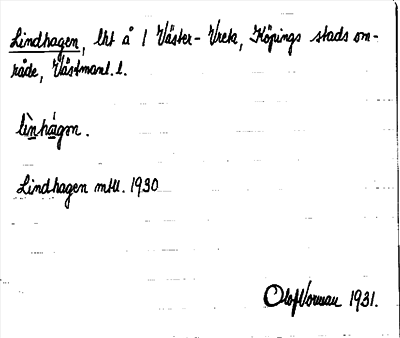 Lindhagen, lht å 1 Väster-Vreta, Köpings stads om-
råde, Västmanl. l.
lìnhágən.
Lindhagen mtl. 1930
Olof Vorman 1931.